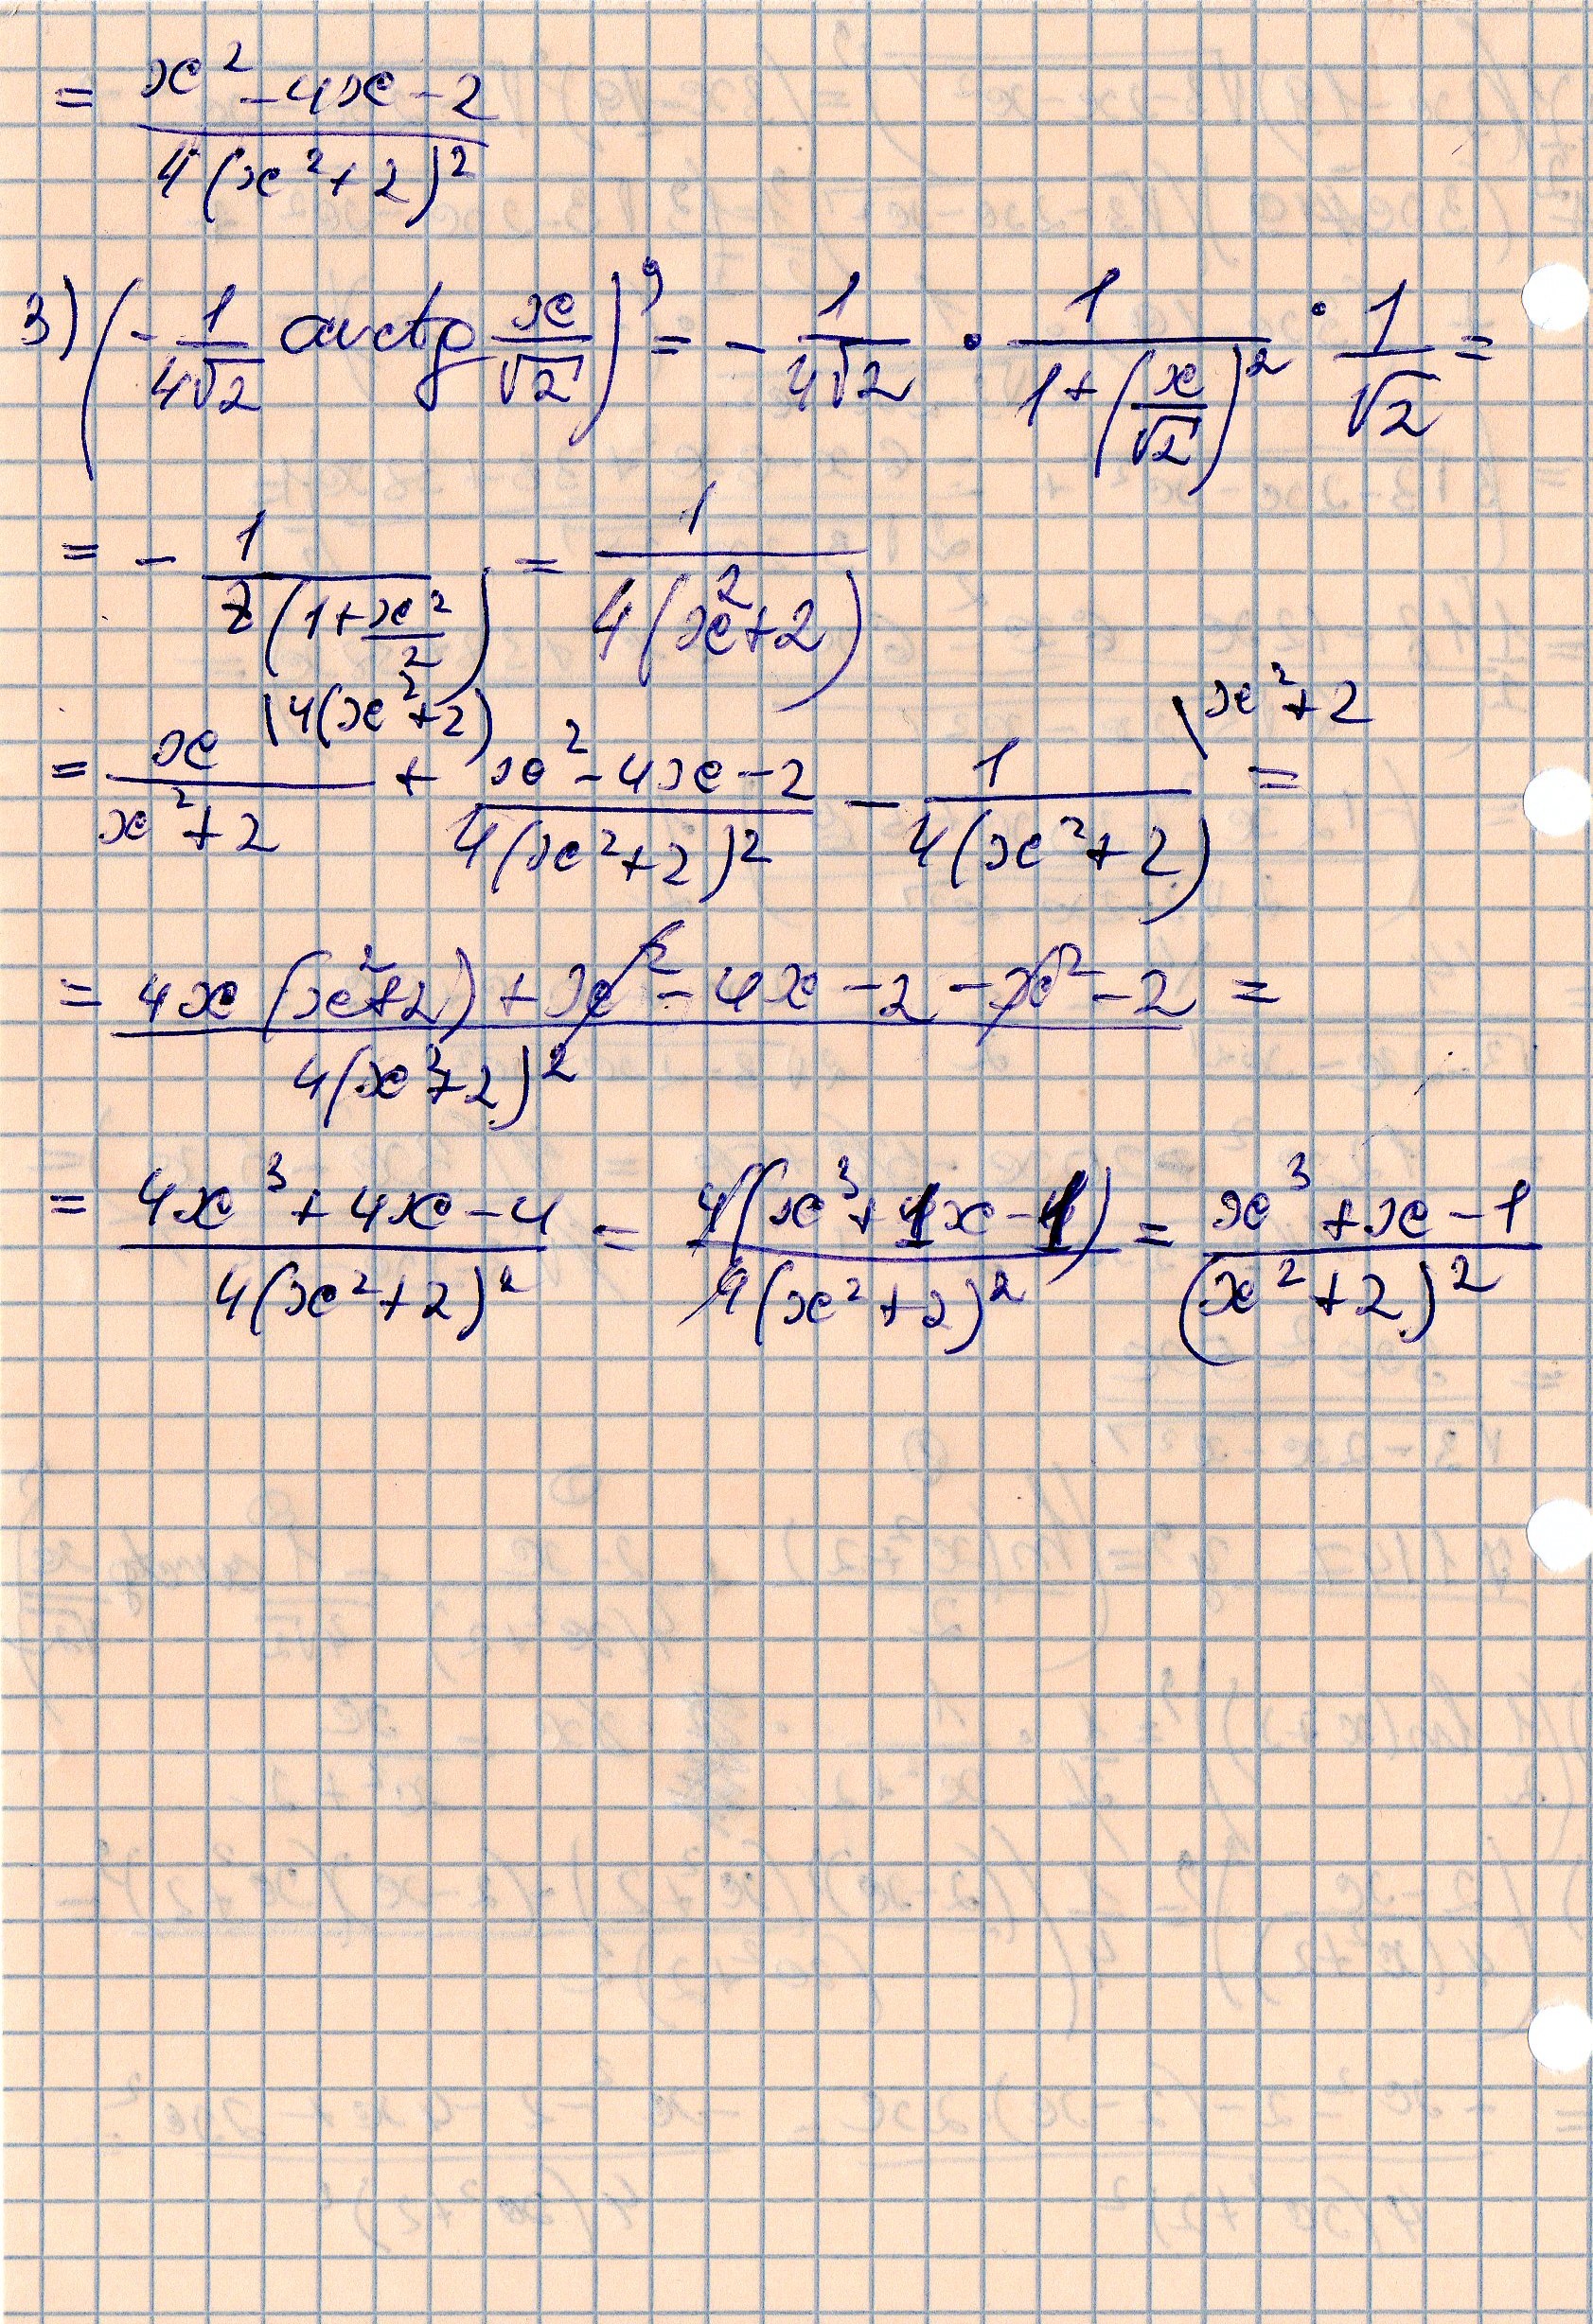 = (x² - 4x - 2)/(4(x² + 2)²)
3) (- 1/(4√2) arctg x/√2)' = - 1/(4√2) · 1/(1 + (x/√2)²) · 1/√2 =
= - 1/(8(1 + x²/2)) = 1/(4(x² + 2))
= x/(x² + 2) \4(x² + 2) + (x² - 4x - 2)/(4(x² + 2)²) - 1/(4(x² + 2)) \x² + 2 =
= (4x(x² + 2) + x² - 4x - 2 - x² - 2)/(4(x² + 2)²) =
= (4x³ + 4x - 4)/(4(x² + 2)²) = (4(x³ + 1x - 1))/(4(x² + 2)²) = (x³ + x - 1)/((x² + 2)²)